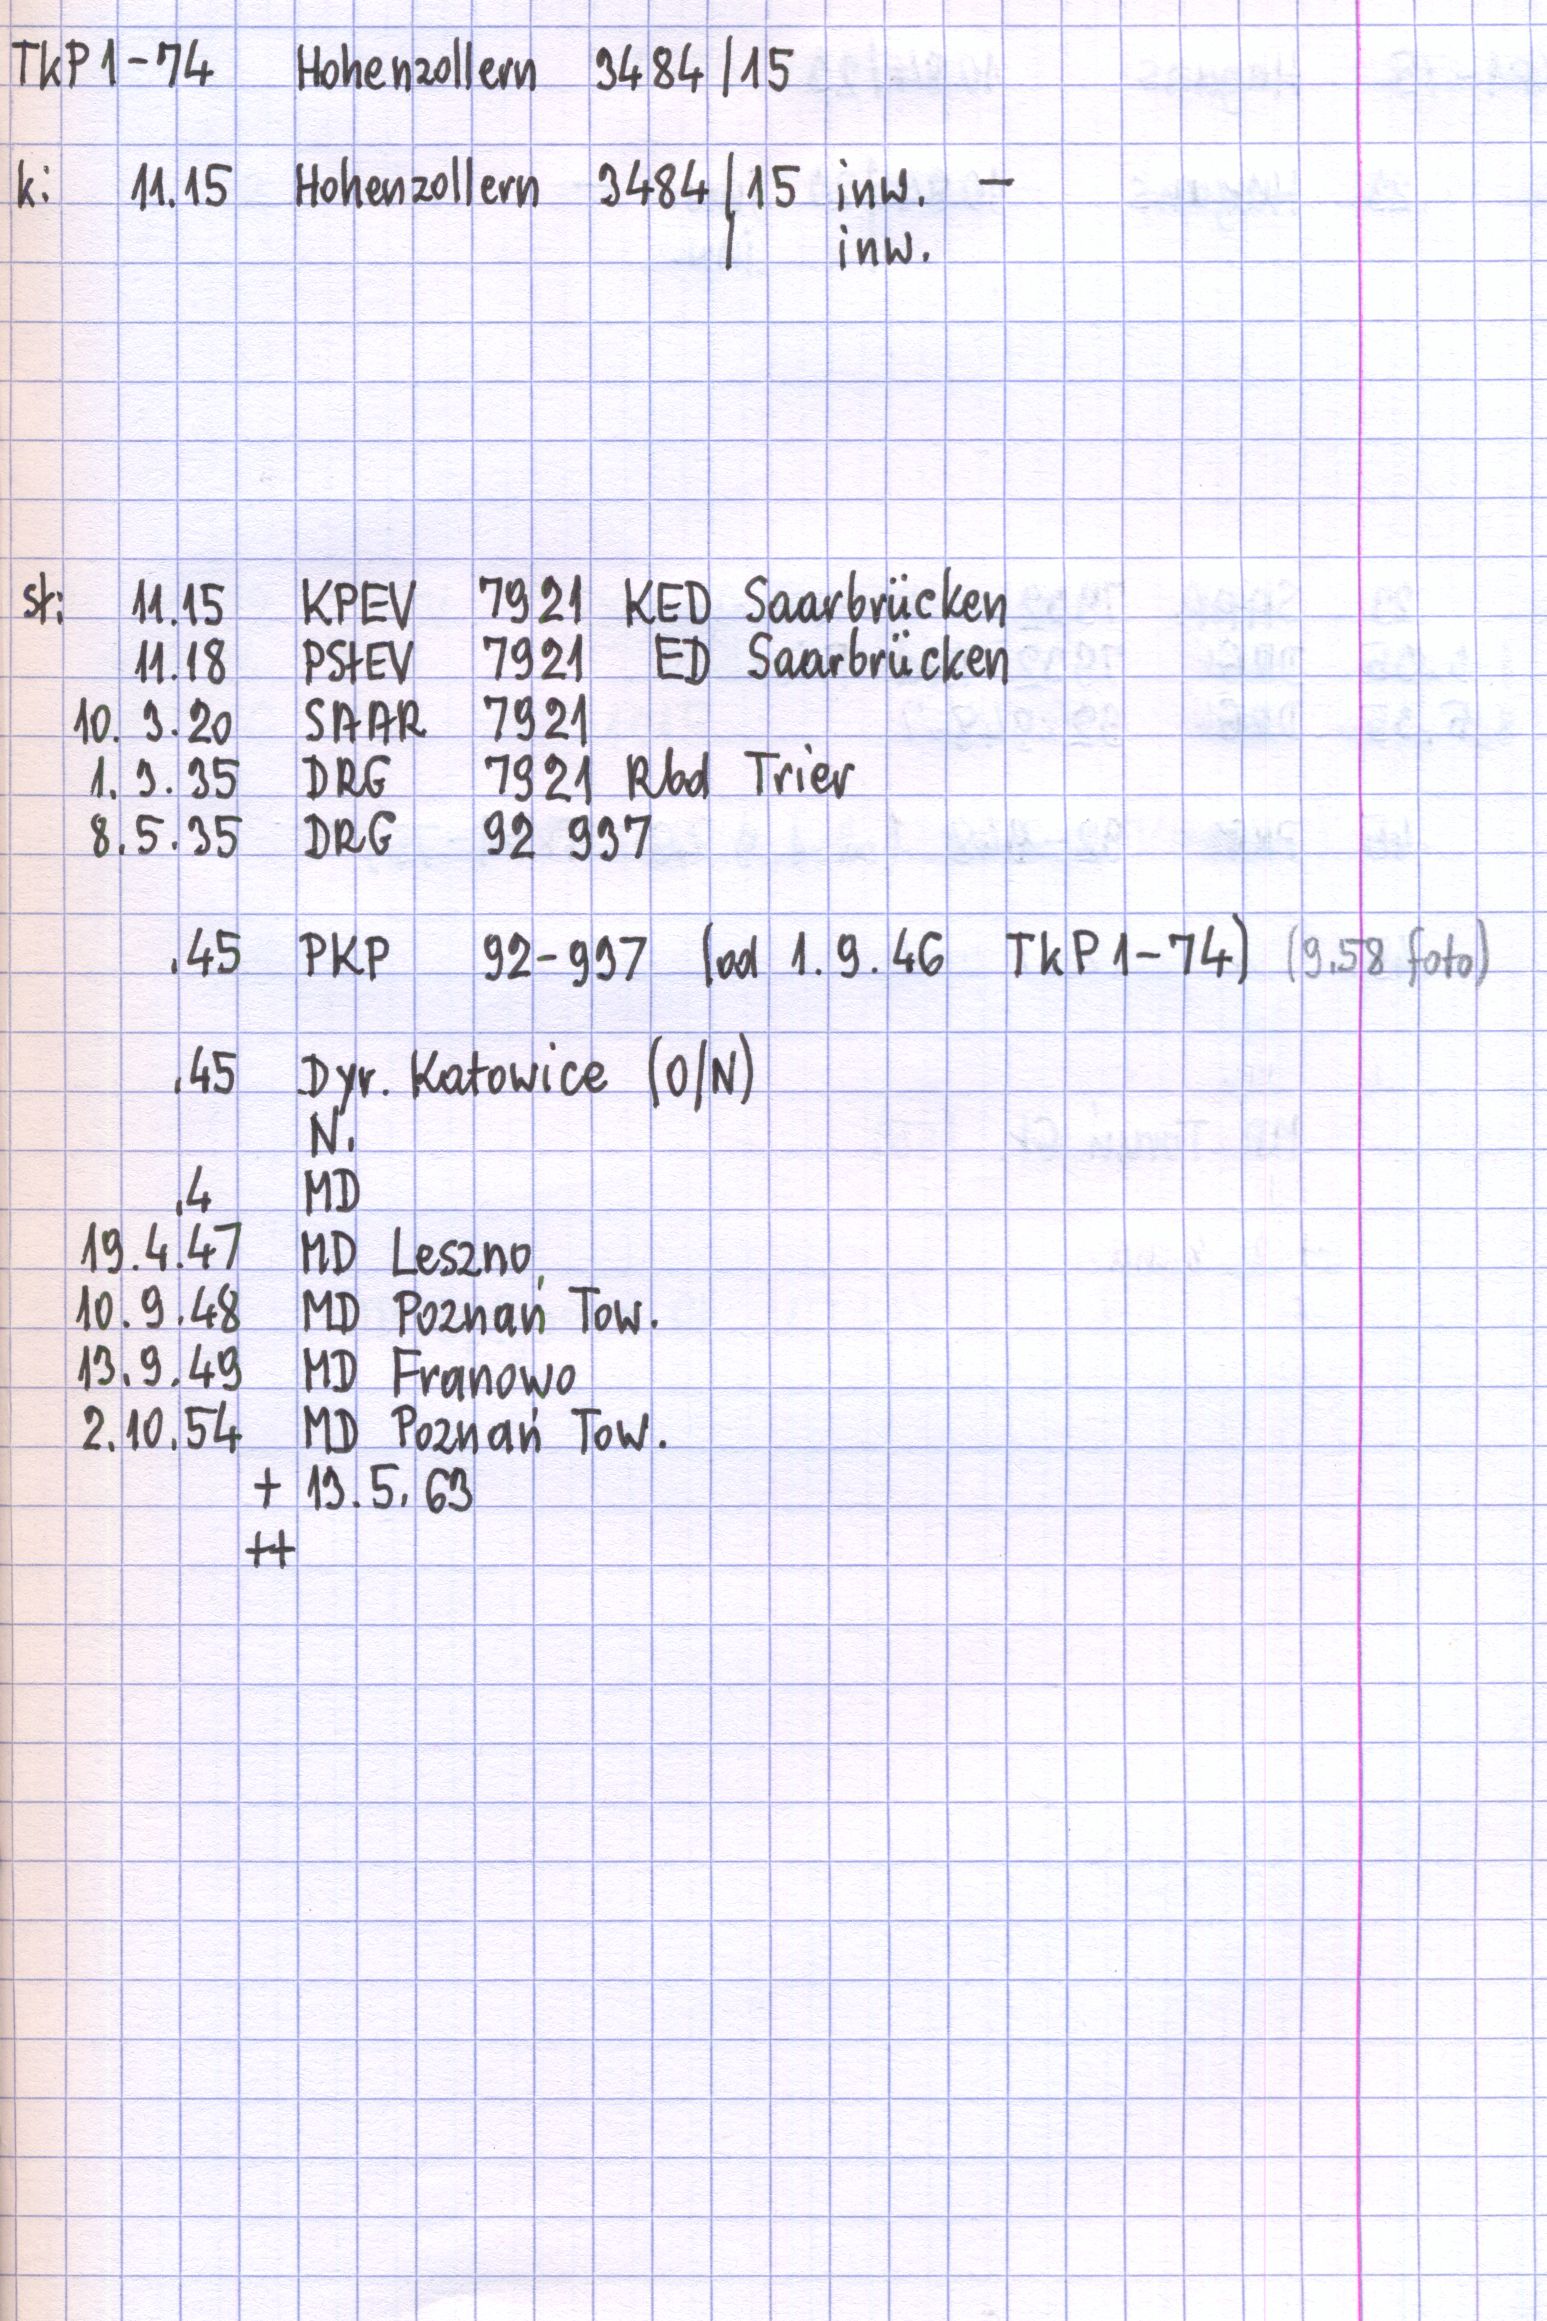 TkP1-74 Hohenzollern 3484/15
k: 11.15 Hohenzollern 3484/15 inw. -
/ inw.
st: 11.15 KPEV 7921 KED Saarbrücken
11.18 PStEV 7921 ED Saarbrücken
10.3.20 SAAR 7921
1.3.35 DRG 7921 Rbd Trier
8.5.35 DRG 92 937
.45 PKP 92-937 (od 1.9.46 TkP1-74) (9.58 foto)
.45 Dyr. Katowice (O/N)
N.
.4 MD
19.4.47 MD Leszno
10.9.48 MD Poznań Tow.
13.9.49 MD Franowo
2.10.54 MD Poznań Tow.
+ 13.5.63
++